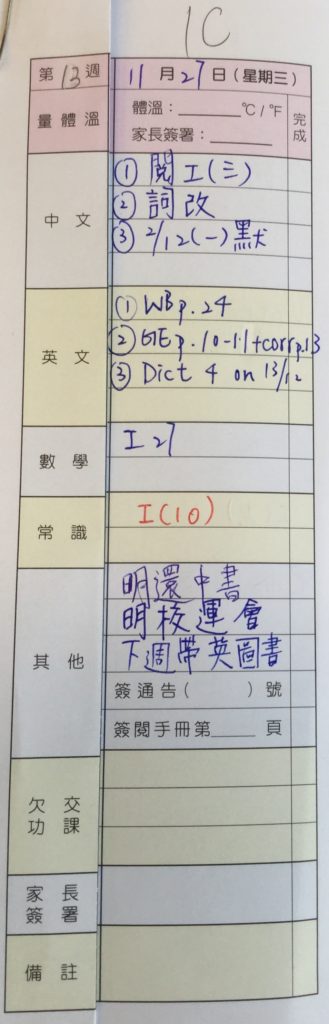 1C
第13週 11月27日(星期三)
量體溫 體溫:______ °C/°F 完成
家長簽署:______
中文 ① 閱工(三)
② 詞改
③ 2/12(一)默
英文 ① WB p.24
② GE p.10-11+corr p.13
③ Dict 4 on 13/12
數學 工27
常識 工(10)
其他 明還中書
明校運會
下週帶英圖書
簽通告( )號
簽閱手冊第____頁
欠交功課
家長簽署
備註